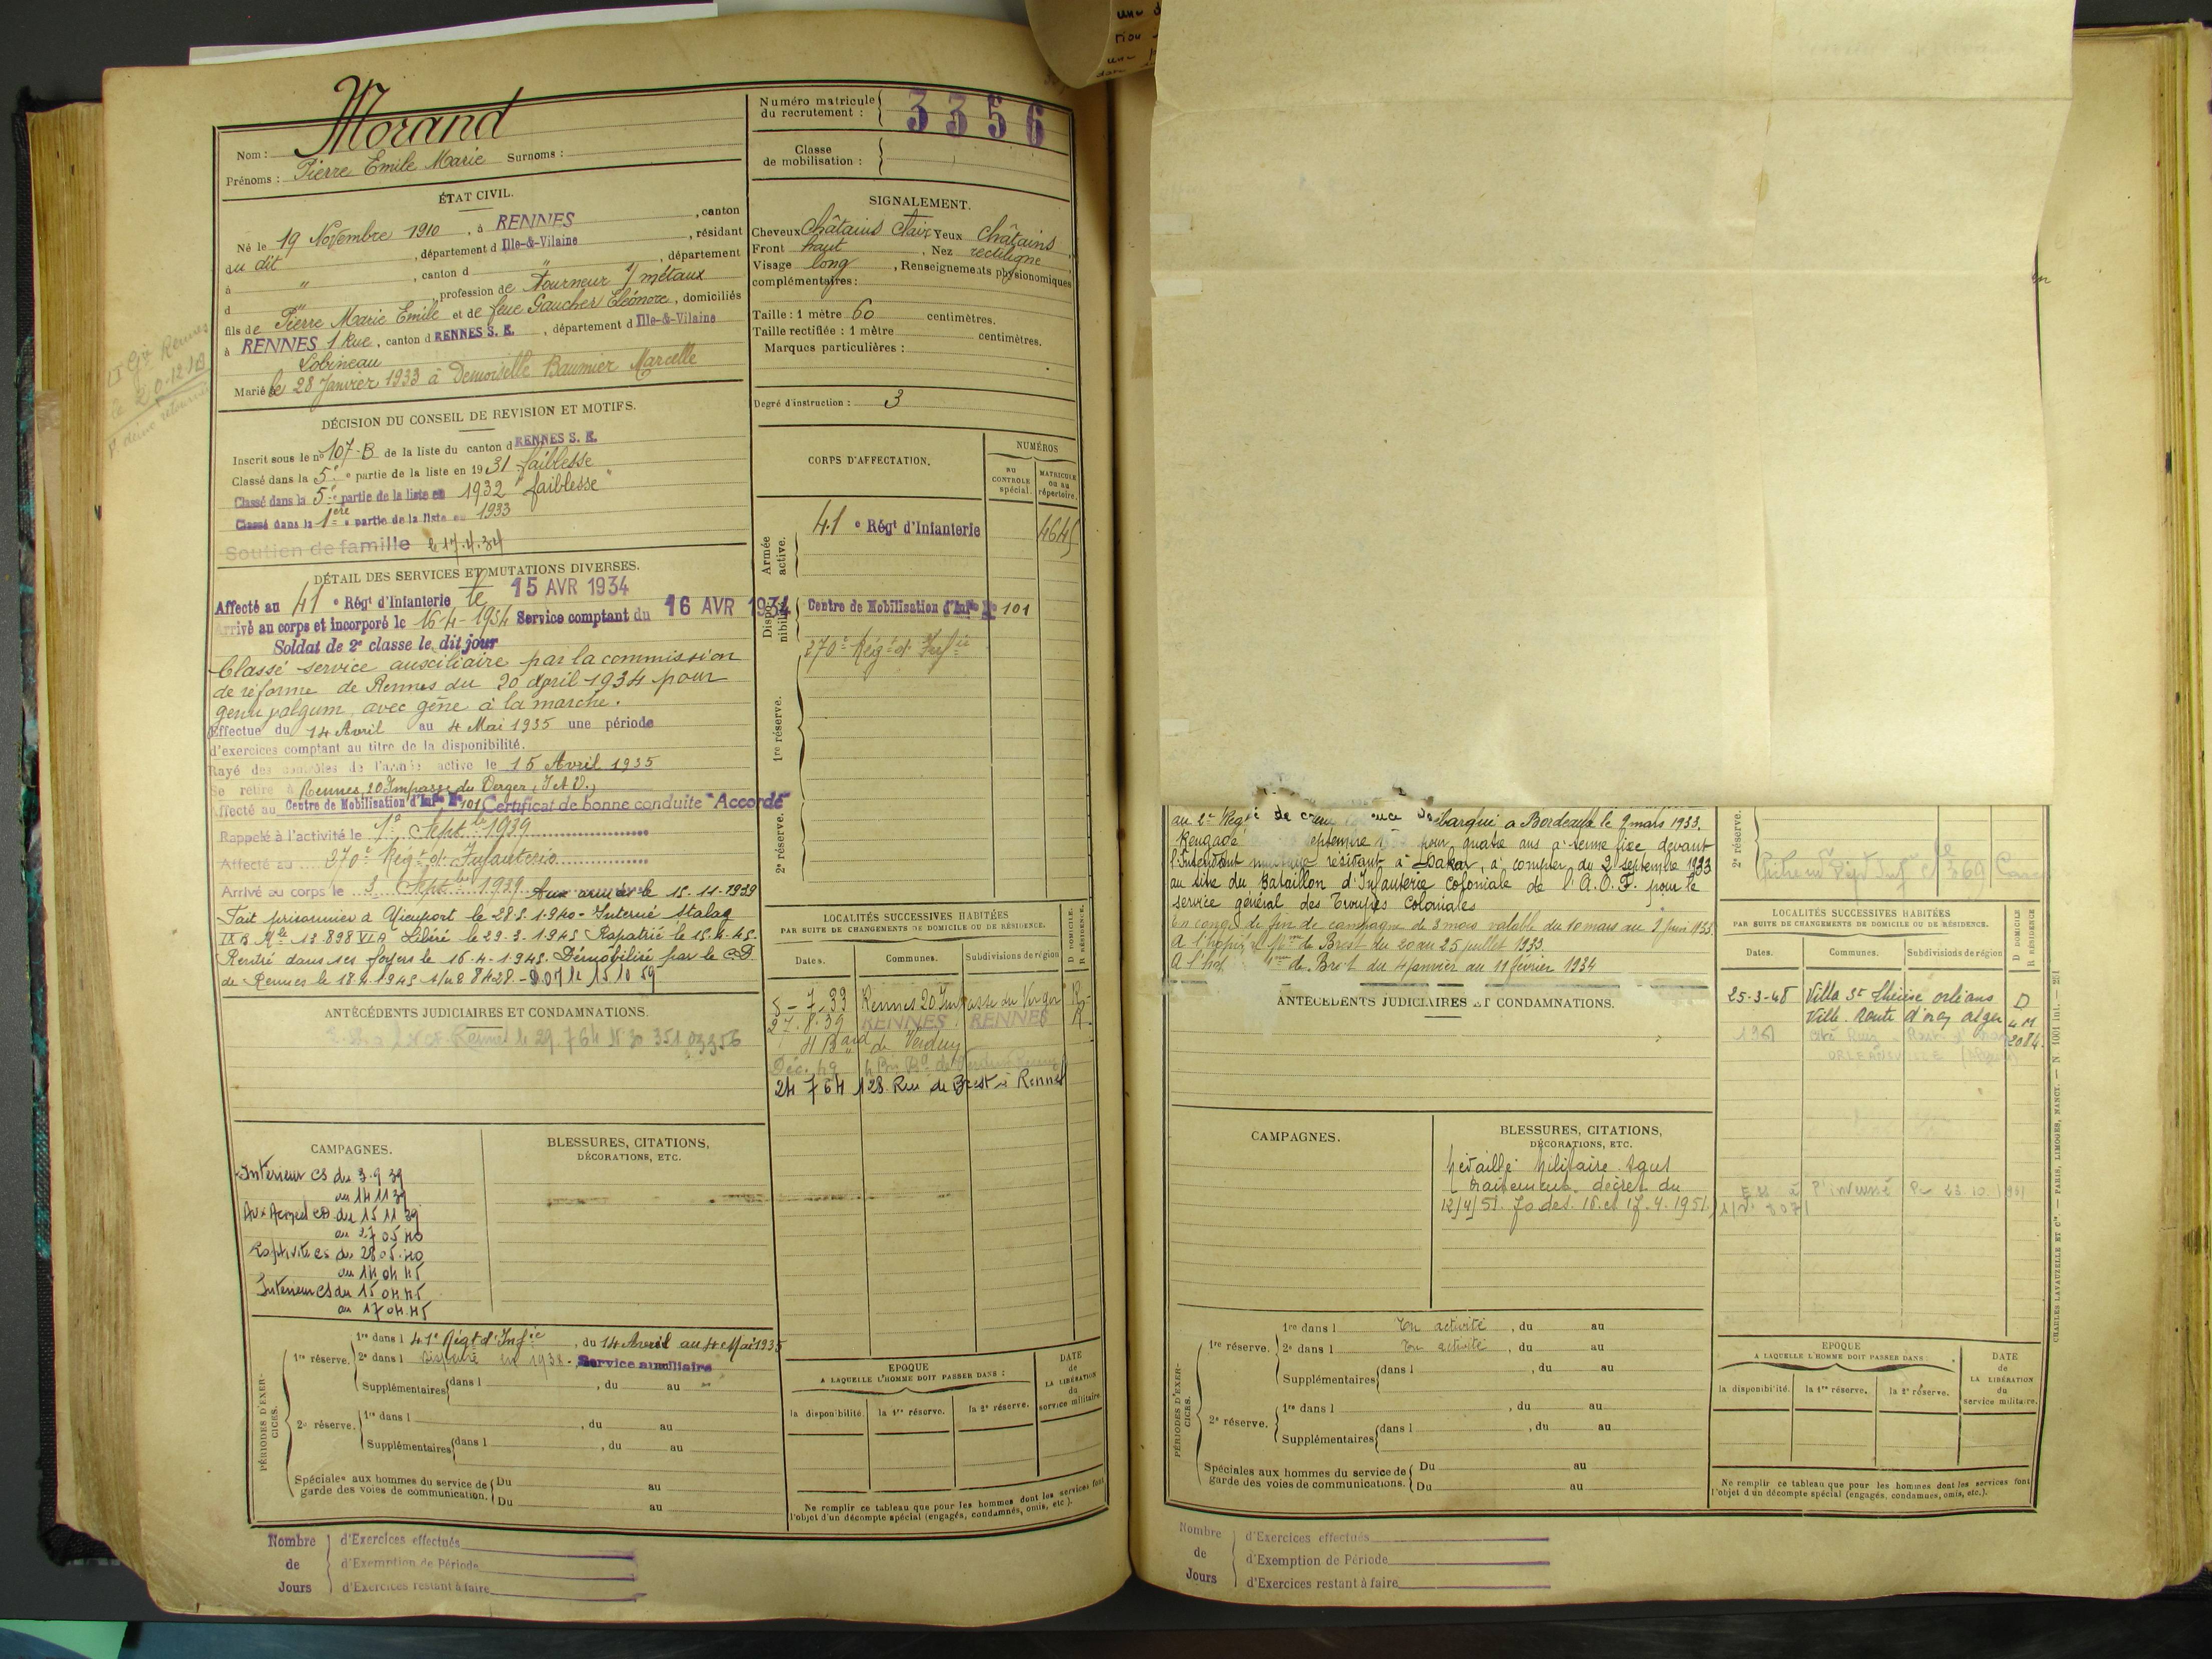 Morand
Nom :
Prénoms : Pierre Emile Marie Surnoms :
ÉTAT CIVIL.
Né le 19 Novembre 1910, à RENNES, canton
du dit, département d Ille-&-Vilaine, résidant
à ", canton d ", département
d " profession de Tourneur s/ métaux
fils de Pierre Marie Emile et de feue Gaucher Eléonore, domiciliés
à RENNES 1 Rue, canton d RENNES S. E., département d Ille-&-Vilaine
Lobineau
Marié le 28 Janvier 1933 à Demoiselle Baumier Marcelle
DÉCISION DU CONSEIL DE REVISION ET MOTIFS.
Inscrit sous le n° 107-B de la liste du canton d RENNES S. E.
Classé dans la 5e partie de la liste en 1931 faiblesse
Classé dans la 5e partie de la liste en 1932 "faiblesse"
Classé dans la 1ère partie de la liste en 1933
Soutien de famille le 17.4.34
DÉTAIL DES SERVICES ET MUTATIONS DIVERSES.
Affecté au 41e Régt d'Infanterie le 15 AVR 1934
Arrivé au corps et incorporé le 16-4-1934 Service comptant du 16 AVR 1934
Soldat de 2e classe le dit jour
Classé service auxiliaire par la commission
de réforme de Rennes du 20 April 1934 pour
genu valgum avec gêne à la marche.
Effectue du 14 Avril au 4 Mai 1935 une période
d'exercices comptant au titre de la disponibilité.
Rayé des contrôles de l'armée active le 15 Avril 1935
Se retire à Rennes, 20 Impasse du Verger, I et V.
Affecté au Centre de Mobilisation d'Infie No 101 Certificat de bonne conduite "Accordé"
Rappelé à l'activité le 1er Septbre 1939
Affecté au 270e Régt d'Infanterie
Arrivé au corps le 3 Septbre 1939 Aux armées le 15-11-1939
Fait prisonnier à Nieuport le 28.5.1940 - Interné Stalag
IX B Mle 13.898 VI A Libéré le 29.3.1945 Rapatrié le 15.4.45.
Rentré dans ses foyers le 16.4.1945. Démobilisé par le CD
de Rennes le 18.4.1945
ANTÉCÉDENTS JUDICIAIRES ET CONDAMNATIONS.
CAMPAGNES.
Intérieur CS du 3.9.39
au 14 11 39
Aux Armées CD du 15 11 39
au 27 05 40
Captivité CS du 28 05 40
au 14 04 45
Intérieur CS du 15 04 45
au 17 04 45
BLESSURES, CITATIONS,
DÉCORATIONS, ETC.
PÉRIODES D'EXERCICES.
1re réserve. 1re dans l 41e Régt d'Infie, du 14 Avril au 4 Mai 1935
2e dans l Dispensé en 1938 - Service auxiliaire
Supplémentaires dans l , du au
2e réserve. 1re dans l , du au
Supplémentaires dans l , du au
Spéciales aux hommes du service de
garde des voies de communication. Du au
Du au
Nombre
de
Jours
d'Exercices effectués
d'Exemption de Période
d'Exercices restant à faire
Numéro matricule
du recrutement : 3356
Classe
de mobilisation :
SIGNALEMENT.
Cheveux Châtains clairs Yeux Châtains
Front haut, Nez rectiligne
Visage long, Renseignements physionomiques
complémentaires :
Taille : 1 mètre 60 centimètres.
Taille rectifiée : 1 mètre centimètres.
Marques particulières :
Degré d'instruction : 3
CORPS D'AFFECTATION.
NUMÉROS
AU CONTRÔLE spécial.
MATRICULE ou au répertoire.
Armée active.
41e Régt d'Infanterie 4645
Disponibilité
Centre de Mobilisation d'Infie No 101
270e Régt d'Infie
1re réserve.
2e réserve.
LOCALITÉS SUCCESSIVES HABITÉES
PAR SUITE DE CHANGEMENTS DE DOMICILE OU DE RÉSIDENCE.
Dates. Communes. Subdivisions de région D DOMICILE. R RÉSIDENCE.
8-7-33 Rennes 20 Impasse du Verger R
27.8.39 RENNES RENNES R
4 Bard de Verdun
Déc. 49
24 7 64 128 Rue de Brest à Rennes
EPOQUE
A LAQUELLE L'HOMME DOIT PASSER DANS :
la disponibilité. la 1re réserve. la 2e réserve.
DATE
de
LA LIBÉRATION
du
service militaire.
Ne remplir ce tableau que pour les hommes dont les services font
l'objet d'un décompte spécial (engagés, condamnés, omis, etc.).
au 2e Régt barqué à Bordeaux le 9 mars 1933.
Rengagé pour quatre ans à terme fixe devant
l'Intendant militaire résidant à Dakar, à compter du 2 septembre 1933
au titre du Bataillon d'Infanterie Coloniale de l'A.O.F. pour le
service général des Troupes Coloniales
En congé de fin de campagne de 3 mois valable du 10 mars au 9 juin 1933
A l'hôpital de Brest du 20 au 25 juillet 1933
A l'hôp de Brest du 4 janvier au 11 février 1934
ANTÉCÉDENTS JUDICIAIRES ET CONDAMNATIONS.
CAMPAGNES.
BLESSURES, CITATIONS,
DÉCORATIONS, ETC.
Médaille Militaire sans
traitement décret du
12/4/51. Jo des 16 et 17.4.1951.
PÉRIODES D'EXERCICES.
1re réserve. 1re dans l En activité, du au
2e dans l En activité, du au
Supplémentaires dans l , du au
2e réserve. 1re dans l , du au
Supplémentaires dans l , du au
Spéciales aux hommes du service de
garde des voies de communications. Du au
Du au
Nombre
de
Jours
d'Exercices effectués
d'Exemption de Période
d'Exercices restant à faire
2e réserve.
LOCALITÉS SUCCESSIVES HABITÉES
PAR SUITE DE CHANGEMENTS DE DOMICILE OU DE RÉSIDENCE.
Dates. Communes. Subdivisions de région D DOMICILE R RÉSIDENCE
25-3-48 Villa St Thérèse Orléans D
Ville Route d'Oran Alger
ORLÉANSVILLE
EPOQUE
A LAQUELLE L'HOMME DOIT PASSER DANS :
la disponibilité. la 1re réserve. la 2e réserve.
DATE
de
LA LIBÉRATION
du
service militaire.
Ne remplir ce tableau que pour les hommes dont les services font
l'objet d'un décompte spécial (engagés, condamnés, omis, etc.).
CHARLES-LAVAUZELLE ET Cie. — PARIS, LIMOGES, NANCY.